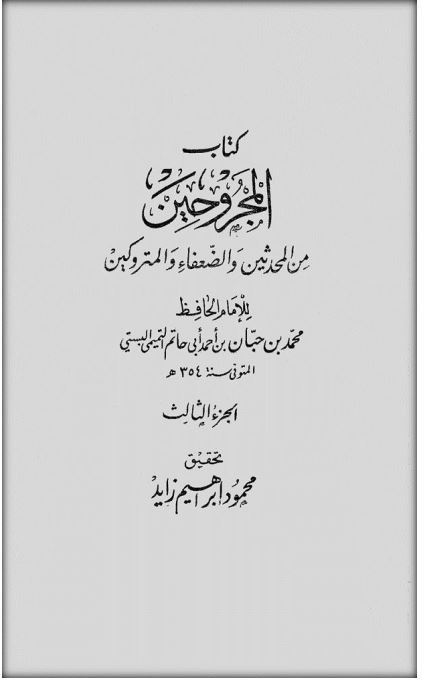 كتاب
المجروحين
من المحدثين والضعفاء والمتروكين
للإمام الحافظ
محمد بن حبان بن أحمد أبي حاتم التميمي البستي
المتوفى سنة ٣٥٤ هـ
الجزء الثالث
تحقيق
محمود إبراهيم زايد